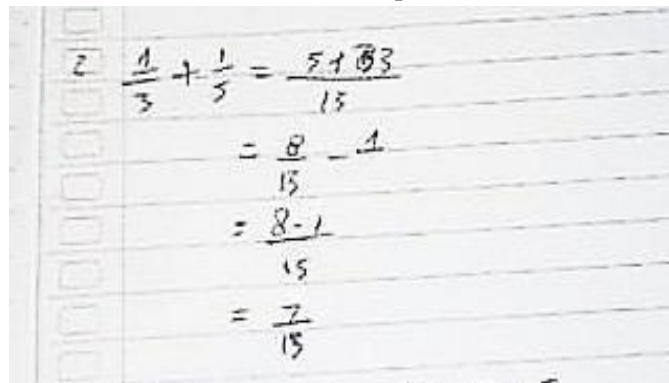 2 1/3 + 1/5 = 5+3/15
= 8/15 - 1
= 8-1/15
= 7/15